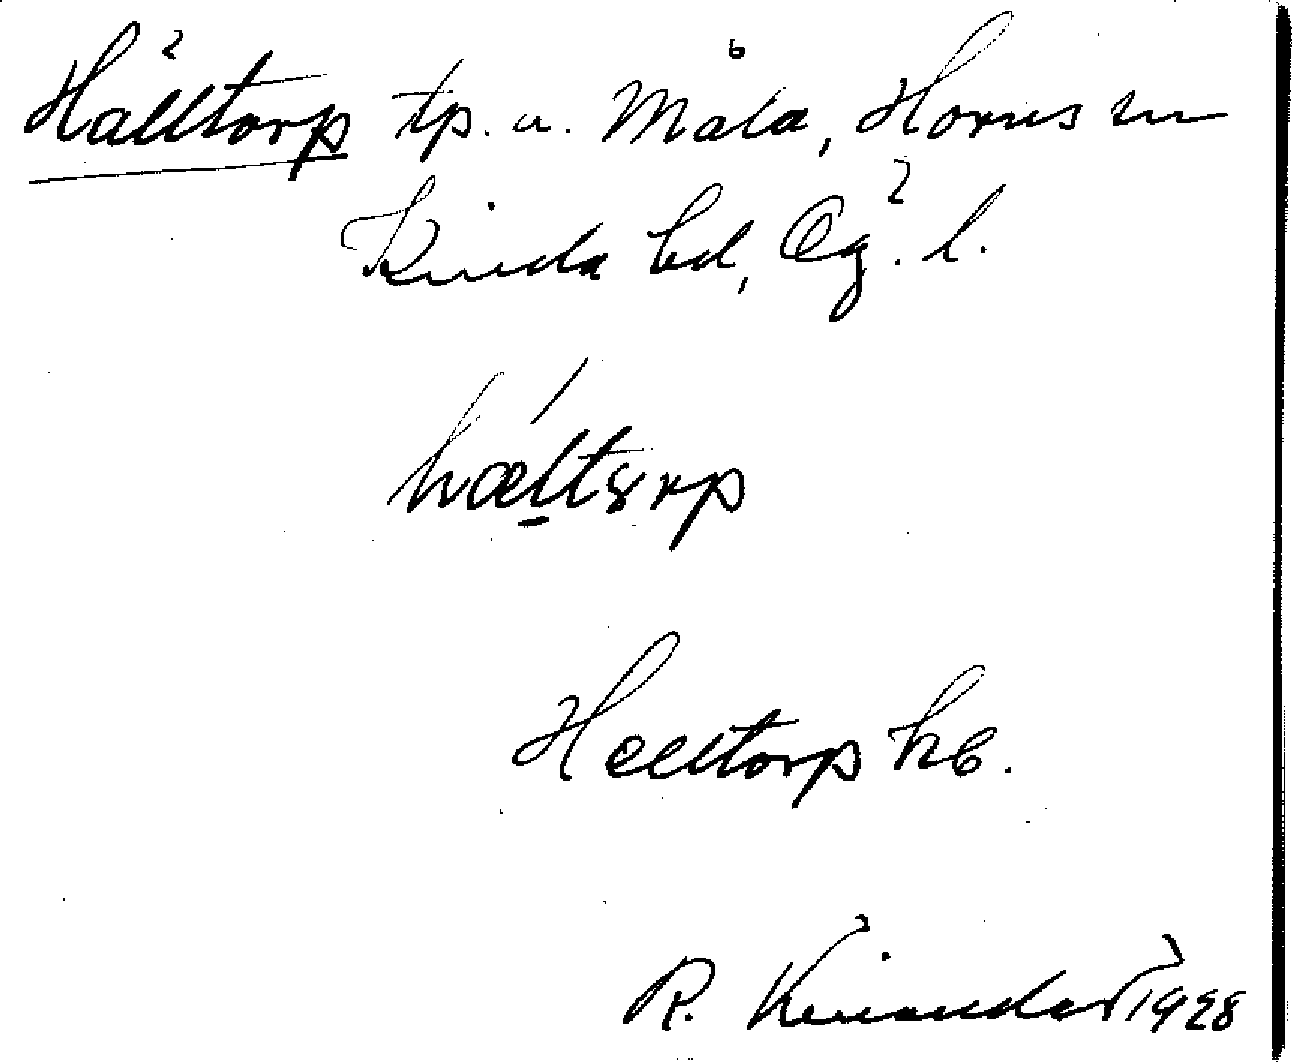 Hälltorp tp. u. Måla, Horns sn
Kinda hd, Ög. l.
hæltorp
Helltorp hb.
R. Kinander 1928